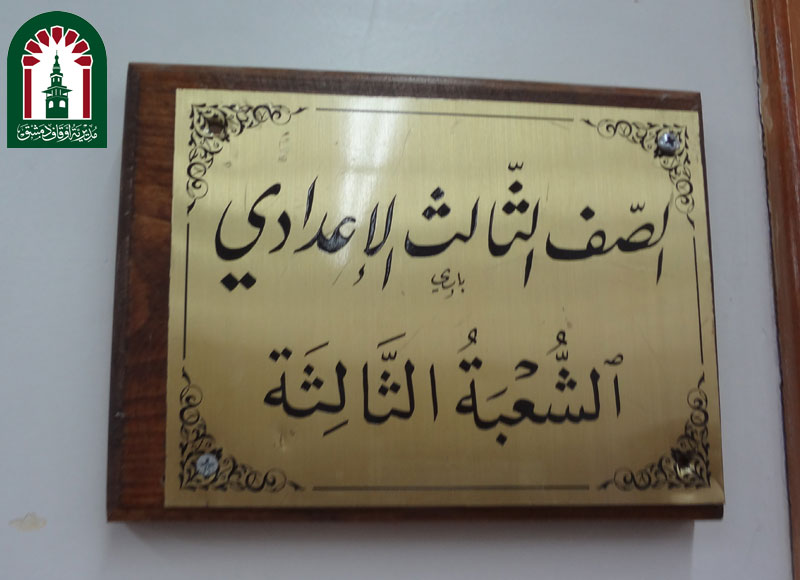 مديرية أوقاف دمشق
الصّف الثّالث الإعدادي
الشُّعْبَةُ الثَّالِثَة